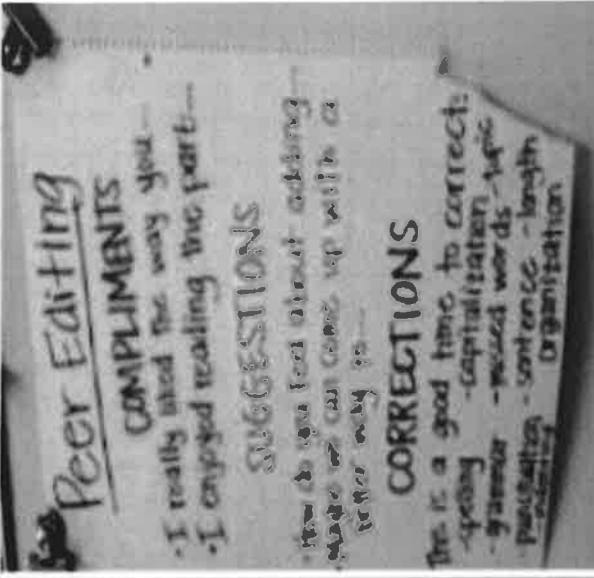 Peer Editing
COMPLIMENTS
• I really liked the way you...
• I enjoyed reading the part...
SUGGESTIONS
• How do you feel about adding...
• Maybe we can come up with a
better way to...
CORRECTIONS
This is a good time to correct:
- spelling - capitalization
- grammar - missed words - topic
- punctuation - sentence - length
organization